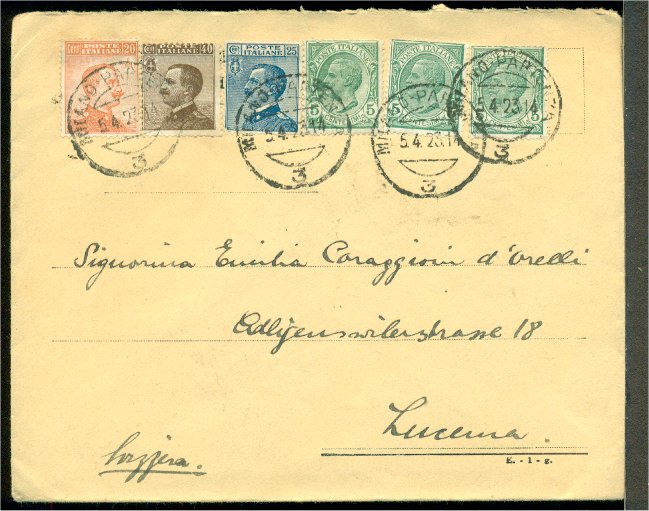 POSTE ITALIANE 20
POSTE ITALIANE 40
POSTE ITALIANE 25
POSTE ITALIANE 5
POSTE ITALIANE 5
POSTE ITALIANE 5
MILANO PARTENZA 5.4.23.14 3
MILANO PARTENZA 5.4.23.14 3
MILANO PARTENZA 5.4.23.14 3
MILANO PARTENZA 5.4.23.14 3
Signorina Emilia Coraggioni d'Orelli
Adligenswilerstrasse 18
Lucerna.
Svizzera.
E. - 1 - g.